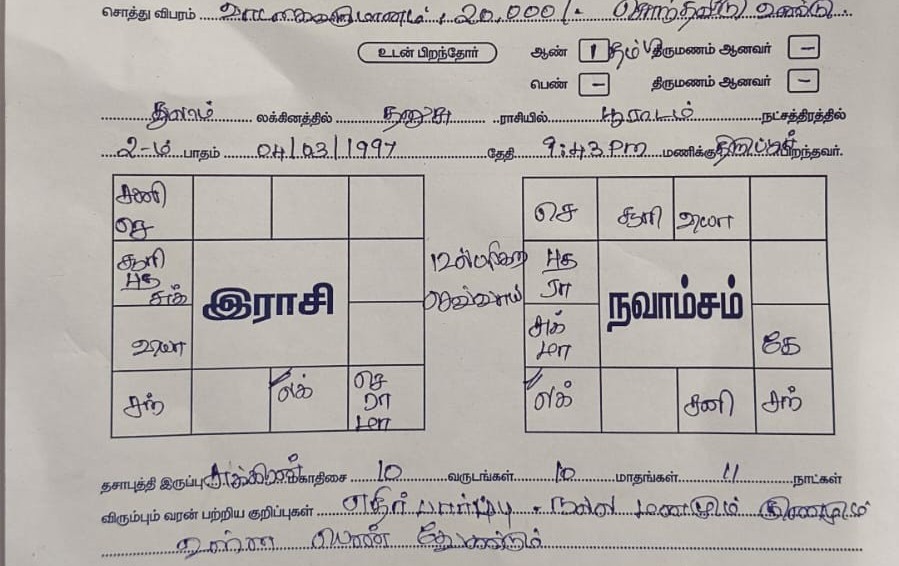 சொத்து விபரம் 20,000/- சொந்தவீடு உண்டு
உடன் பிறந்தோர் ஆண் 1 தம்பி திருமணம் ஆனவர் –
பெண் – திருமணம் ஆனவர் –
துலாம் லக்கினத்தில் தனுசு ராசியில் பூராடம் நட்சத்திரத்தில்
2-ம் பாதம் 04/03/1997 தேதி 9:43 PM மணிக்கு பிறந்தவர்.
சனி
செ
சூரி
புத
சுக்
இராசி
சந்
லக்
செ
ரா
மா
12ல்
செவ்வாய்
செ
சூரி
புத
ரா
சுக்
மா
நவாம்சம்
கே
லக்
சனி
சந்
தசாபுத்தி இருப்பு சுக்கிரன் மகாதிசை 10 வருடங்கள் 10 மாதங்கள் 11 நாட்கள்
விரும்பும் வரன் பற்றிய குறிப்புகள் எதிர்பார்ப்பு - நல்ல மணமும் குணமும்
உள்ள பெண் வேண்டும்